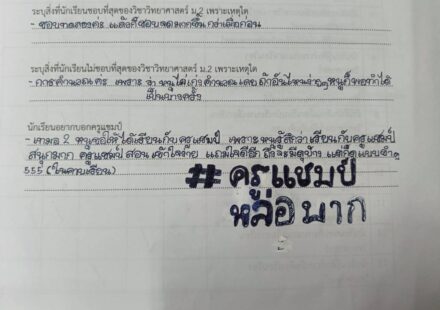 ระบุสิ่งที่นักเรียนชอบที่สุดของวิชาวิทยาศาสตร์ ม.2 เพราะเหตุใด
- ชอบทดลองค่ะ แล้วก็ชอบจดมากขึ้นกว่าเมื่อก่อน
ระบุสิ่งที่นักเรียนไม่ชอบที่สุดของวิชาวิทยาศาสตร์ ม.2 เพราะเหตุใด
- การคำนวณค่ะ เพราะว่า หนูไม่เก่งคำนวณเลย ถ้าอันไหนง่ายๆหนูก็พอทำได้
เป็นบางครั้ง
นักเรียนอยากบอกครูแชมป์
- เทอม 2 หนูขอให้ได้เรียนกับครูแชมป์ เพราะหนูรู้สึกว่าเรียนกับครูแชมป์
สนุกมาก ครูแชมป์สอนเข้าใจง่าย แถมใจดีอีก ถึงจะมีดุบ้าง แต่ก็
555 (ในคาบเรียน)
#ครูแชมป์
หล่อมาก